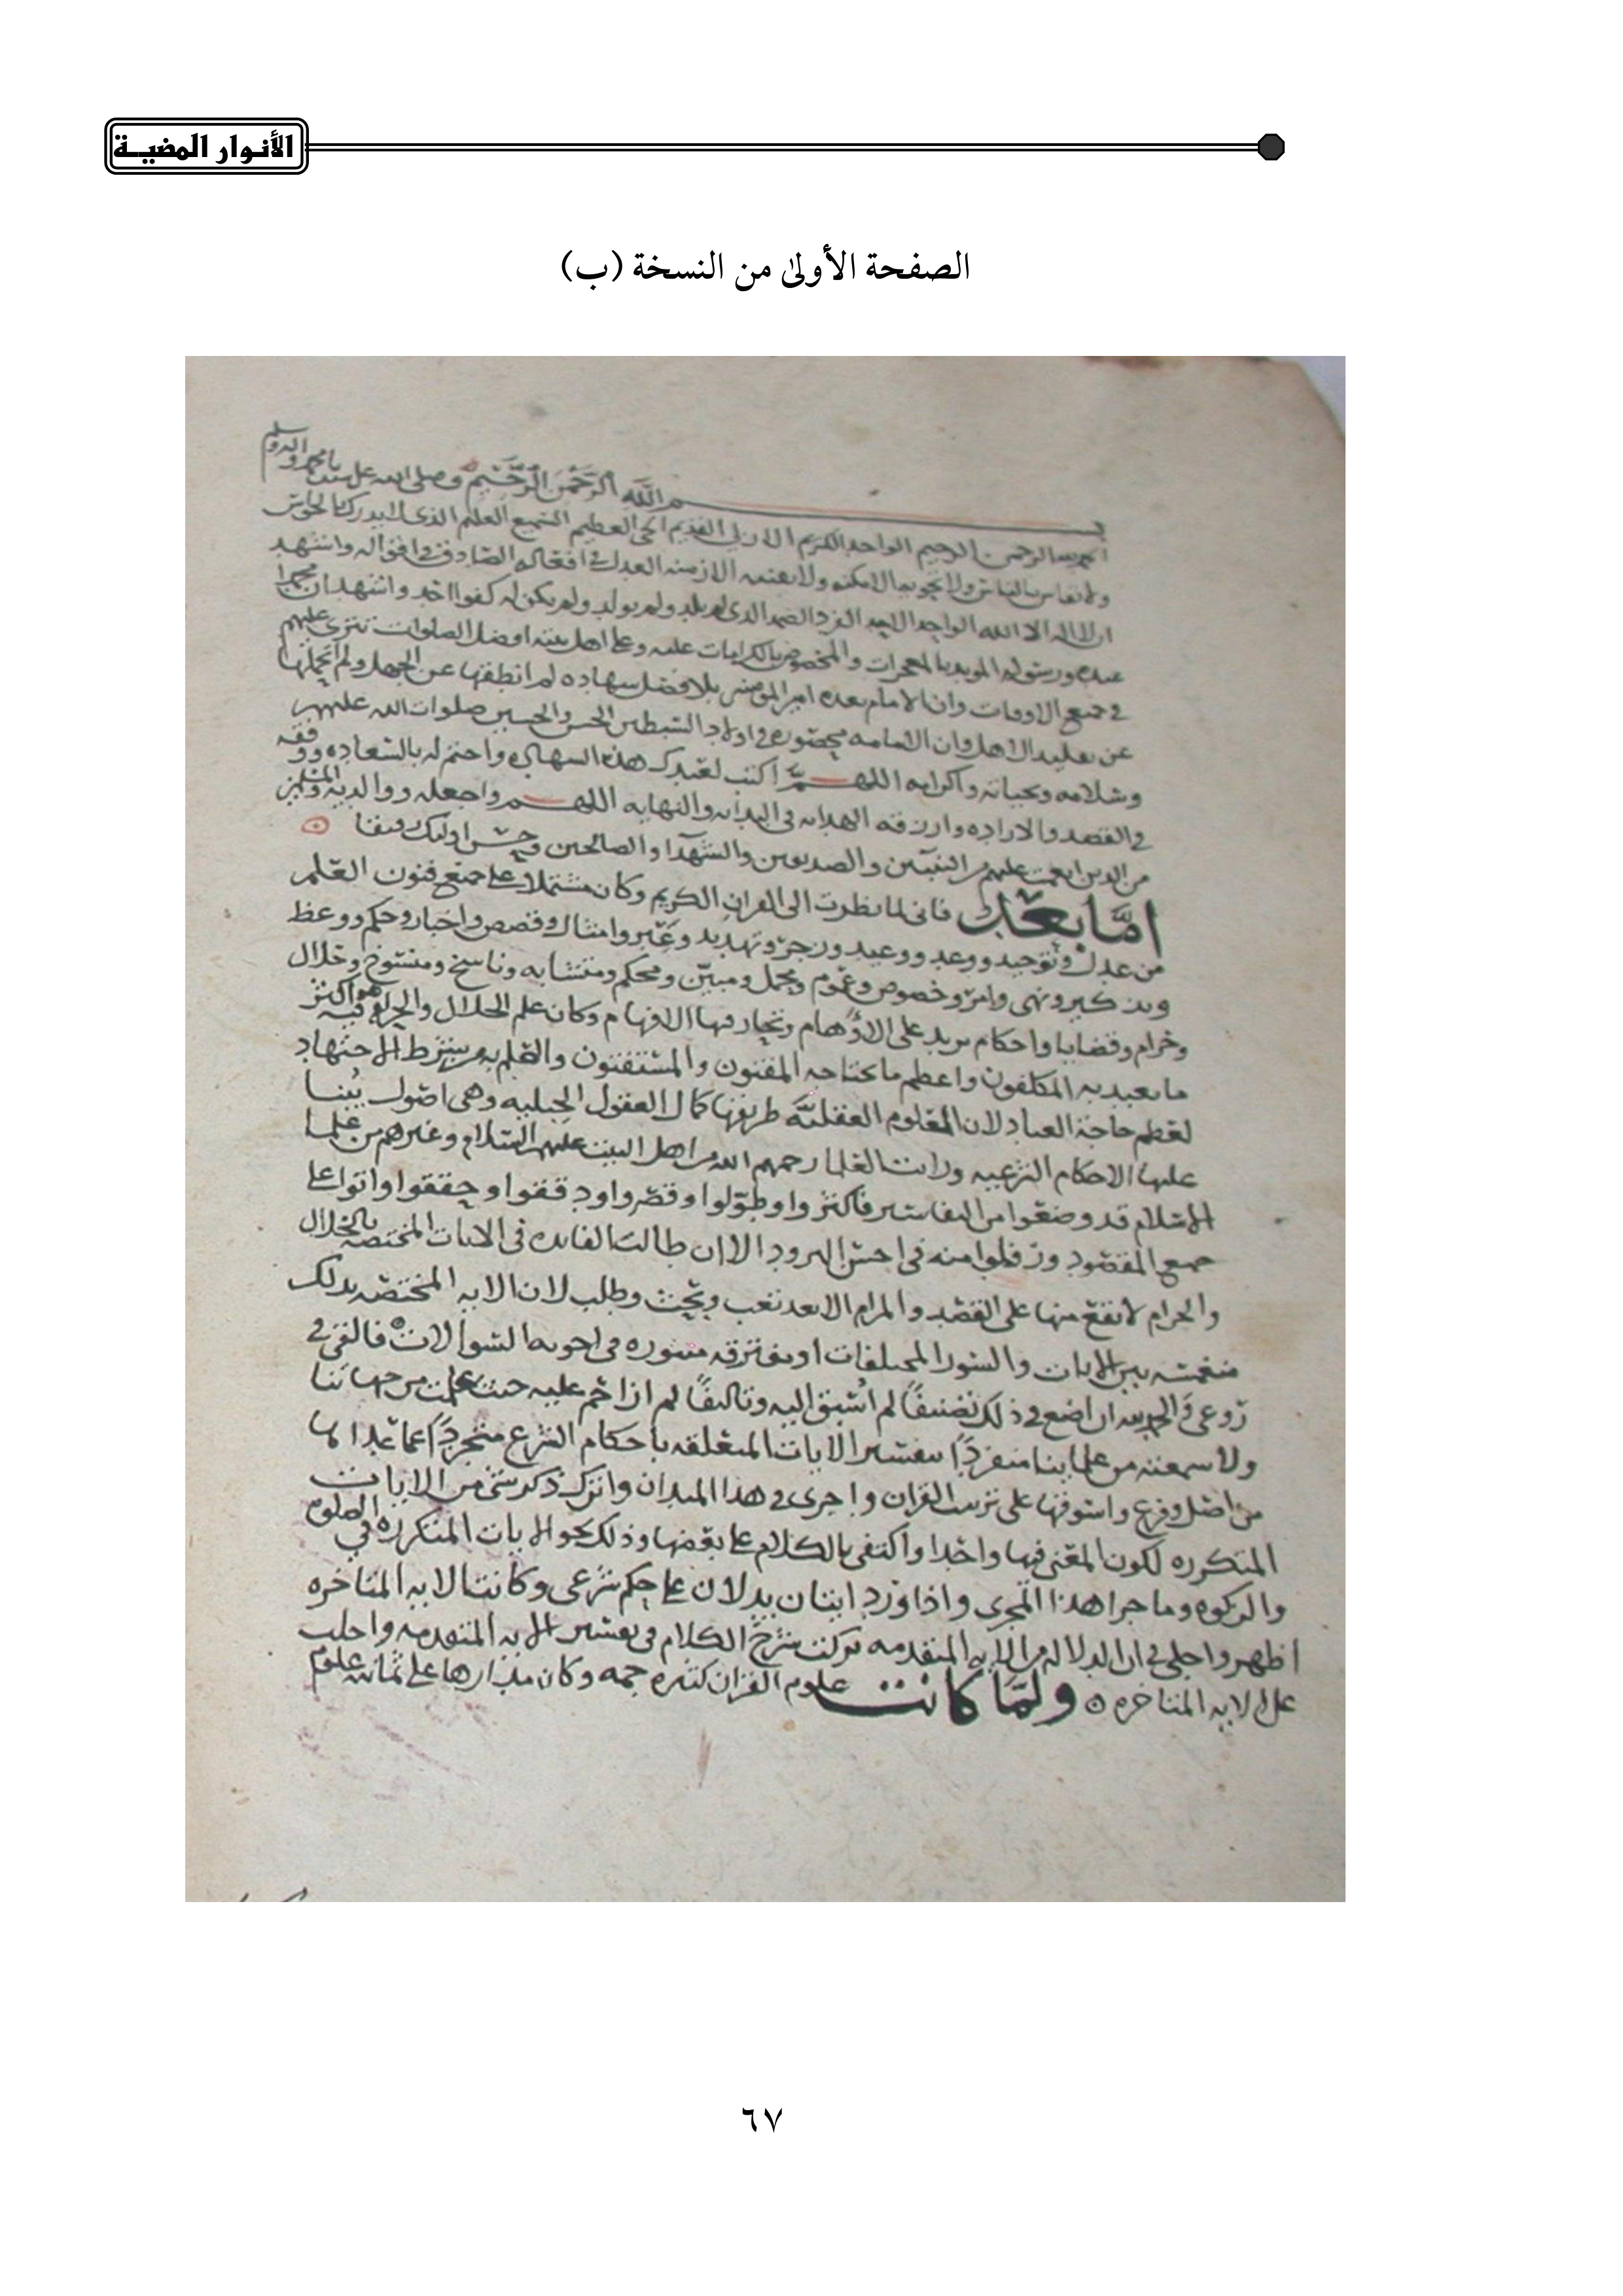 الأنـوار المضيــة
الصفحة الأولىٰ من النسخة (ب)
بسم الله الرحمن الرحيم وصلى الله على سيدنا محمد واله وسلم
الحمد لله الرحمن الرحيم الواحد الكريم الازلي القديم الحي العظيم السميع العليم الذي لا يدرك بالحواس
ولا يقاس بالناس ولا تحويه الامكنه ولا الازمنه العدل في افعاله الصادق في اقواله واشهد
ان لا اله الا الله الواحد الاحد الفرد الصمد الذي لم يلد ولم يولد ولم يكن له كفوا احد واشهد ان محمدا
عبده ورسوله المويد بالمعجزات والمخصوص بالكرامات عليه وعلى اهل بيته افضل الصلوات تترى عليهم
في جميع الاوقات وان الامام بعده امير المومنين بلا فصل شهاده لم انطقها عن الجهل ولم اتحملها
عن تقليد الاهل وان الامامه محصوره في اولاد السبطين الحسن والحسين صلوات الله عليهم
وسلامه وتحياته واكرامه اللهم اكتب لعبدك هذه الشهاده واختم له بالسعاده ووفقه
في القصد والاراده وارزقه الهدايه في البدايه والنهايه اللهم واجعله ووالديه والمسلمين
من الذين انعمت عليهم من النبيين والصديقين والشهدا والصالحين وحسن اوليك رفيقا
اما بعد فاني لما نظرت الى القران الكريم وكان مشتملا على جميع فنون العلم
من عدل وتوحيد ووعد ووعيد وزجر وتهديد وعبر وامثال وقصص واخبار وحكم ووعظ
وتذكير ونهي وامر وخصوص وعموم ومجمل ومبين ومحكم ومتشابه وناسخ ومنسوخ وحلال
وحرام وقضايا واحكام تريد على الاوهام وتحار فيها الافهام وكان علم الحلال والحرام فيه هو اكثر
ما تعبد به المكلفون واعظم ما يحتاجه المفتون والمستفتون والعلم به من شرط الاجتهاد
لعظم حاجة العباد لان العلوم العقليه طريقها كمال العقول الجبليه وهي اصول يبنا
عليها الاحكام الشرعيه ورايت العلما رحمهم الله من اهل البيت عليهم السلام وغيرهم من علما
الاسلام قد وضعوا من التفاسير فاكثروا وطولوا وقصروا ودققوا وحققوا واتوا على
جميع المقصود ورفلوا منه في احسن البرود الا ان طالب الفايده في الايات المختصه بالحلال
والحرام لا يقع منها على القصد والمرام الا بعد تعب وبحث وطلب لان الايه المختصه بذلك
منغمسه بين الايات والسور المختلفات او مفترقه منثوره في اجوبه السوالات فالقي في
روعي وفي الجربه ان اضع في ذلك تصنيفا لم اسبق اليه وتاليفا لم ازاحم عليه حيث علمت من جهاتنا
ولا سمعته من علماينا منفردا بتفسير الايات المتعلقه باحكام الشرع متجردا عما عداها
من اصل وفرع واستوفيها على ترتيب القران واجري في هذا الميدان واترك ذكر شي من الايات
المتكرره لكون المعنى فيها واحدا واكتفي بالكلام على بعضها وذلك نحو الايات المتكرره في الصلوه
والزكوه وما جرا هذا المجرى واذا ورد ايتان يدلان على حكم شرعي وكانت الايه المتاخره
اظهر واجلى في الدلاله من الايه المتقدمه تركت شرح الكلام في تفسير الايه المتقدمه واحلت
على الايه المتاخره ولما كانت علوم القران كثيره جمه وكان مدارها على ثمانيه علوم
٦٧